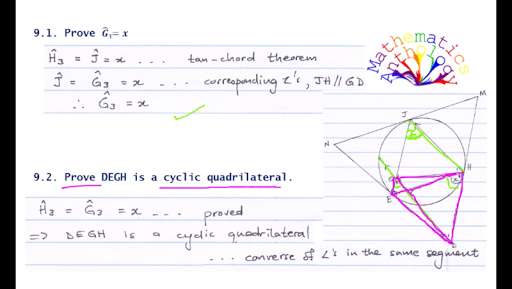 9.1. Prove Ĝ₁= x
Ĥ₃ = Ĵ = x ... tan-chord theorem
Ĵ = Ĝ₃ = x ... corresponding ∠'s, JH // GD
∴ Ĝ₃ = x
Mathematics
Anthology
M
J
N
F
H
G
x
E
D
9.2. Prove DEGH is a cyclic quadrilateral.
Ĥ₂ = Ĝ₂ = x ... proved
⇒ DEGH is a cyclic quadrilateral
... converse of ∠'s in the same segment